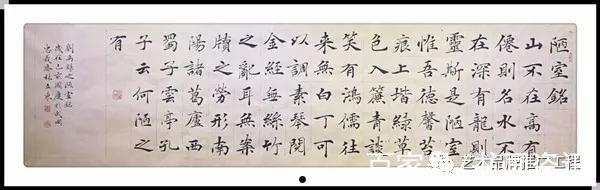 陋室銘
山不在高有
僊則名水不
在深有龍則
靈斯是陋室
惟吾德馨苔
痕上堦綠草
色入簾青談
笑有鴻儒往
来無白丁可
以調素琴閱
金經無絲竹
之亂耳無案
牘之勞形南
陽諸葛廬西
蜀子雲亭孔
子云何陋之
有
劉禹錫之陋室銘
歲在己亥國慶於武
百家号
艺术品牌推广工程